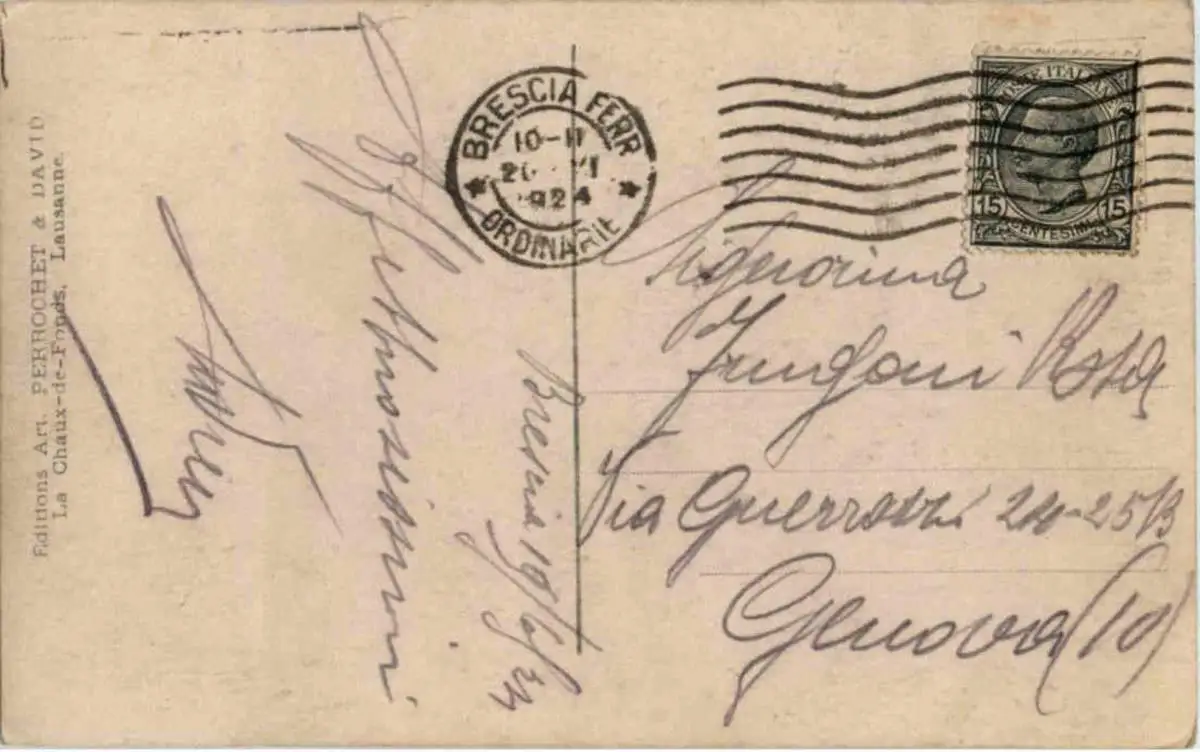 Editions Art. PERROCHET & DAVID
La Chaux-de-Fonds, Lausanne.
Brescia 19/6/24
Affettuosissimi
BRESCIA FERR
10-11
VI
1924
ORDINARIE
POSTE ITALIANE
15 15
CENTESIMI
Signorina
Frugoni Rosa
Via Guerrazzi 24-25B
Genova (10)